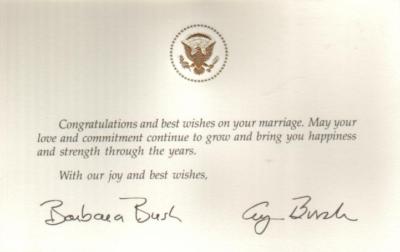 Congratulations and best wishes on your marriage. May your
love and commitment continue to grow and bring you happiness
and strength through the years.
With our joy and best wishes,
Barbara Bush Bush